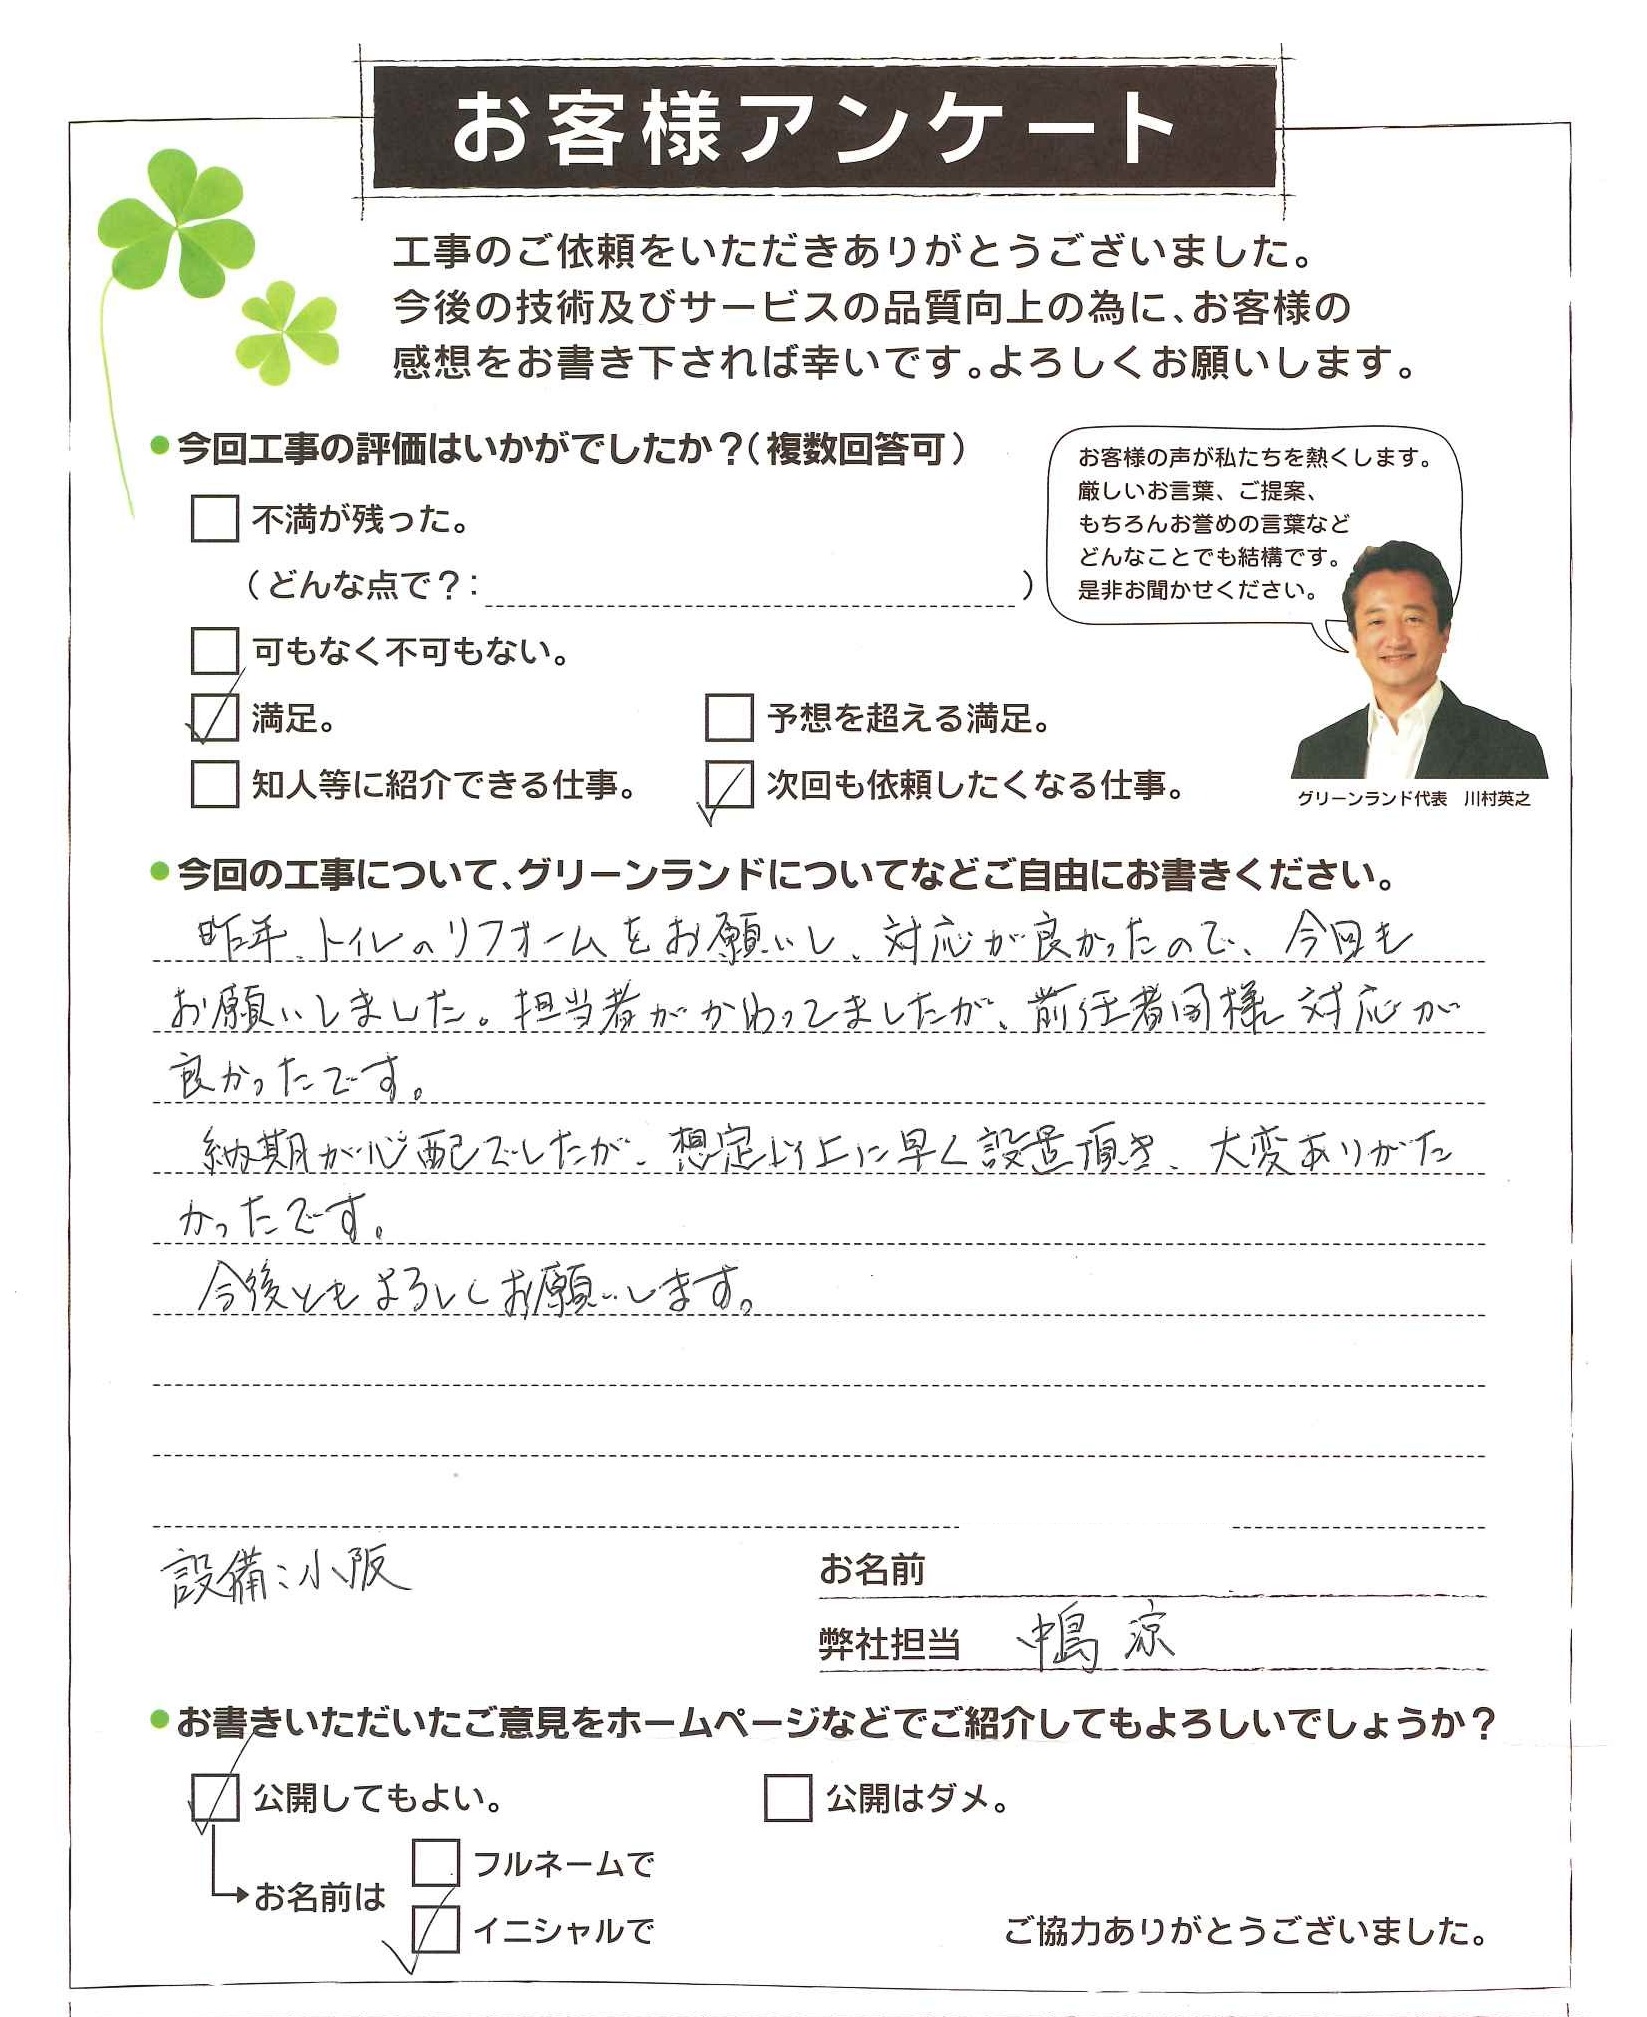 お客様アンケート
工事のご依頼をいただきありがとうございました。
今後の技術及びサービスの品質向上の為に、お客様の
感想をお書き下されば幸いです。よろしくお願いします。
今回工事の評価はいかがでしたか？（複数回答可）
不満が残った。
（どんな点で？：　）
可もなく不可もない。
満足。
予想を超える満足。
知人等に紹介できる仕事。
次回も依頼したくなる仕事。
お客様の声が私たちを熱くします。
厳しいお言葉、ご提案、
もちろんお誉めの言葉など
どんなことでも結構です。
是非お聞かせください。
グリーンランド代表　川村英之
今回の工事について、グリーンランドについてなどご自由にお書きください。
昨年、トイレのリフォームをお願いし、対応が良かったので、今回も
お願いしました。担当者がかわってましたが、前任者同様 対応が
良かったです。
納期が心配でしたが、想定以上に早く設置頂き、大変ありがた
かったです。
今後ともよろしくお願いします。
設備：小阪
お名前
弊社担当　中嶋 涼
お書きいただいたご意見をホームページなどでご紹介してもよろしいでしょうか？
公開してもよい。
公開はダメ。
お名前は
フルネームで
イニシャルで
ご協力ありがとうございました。